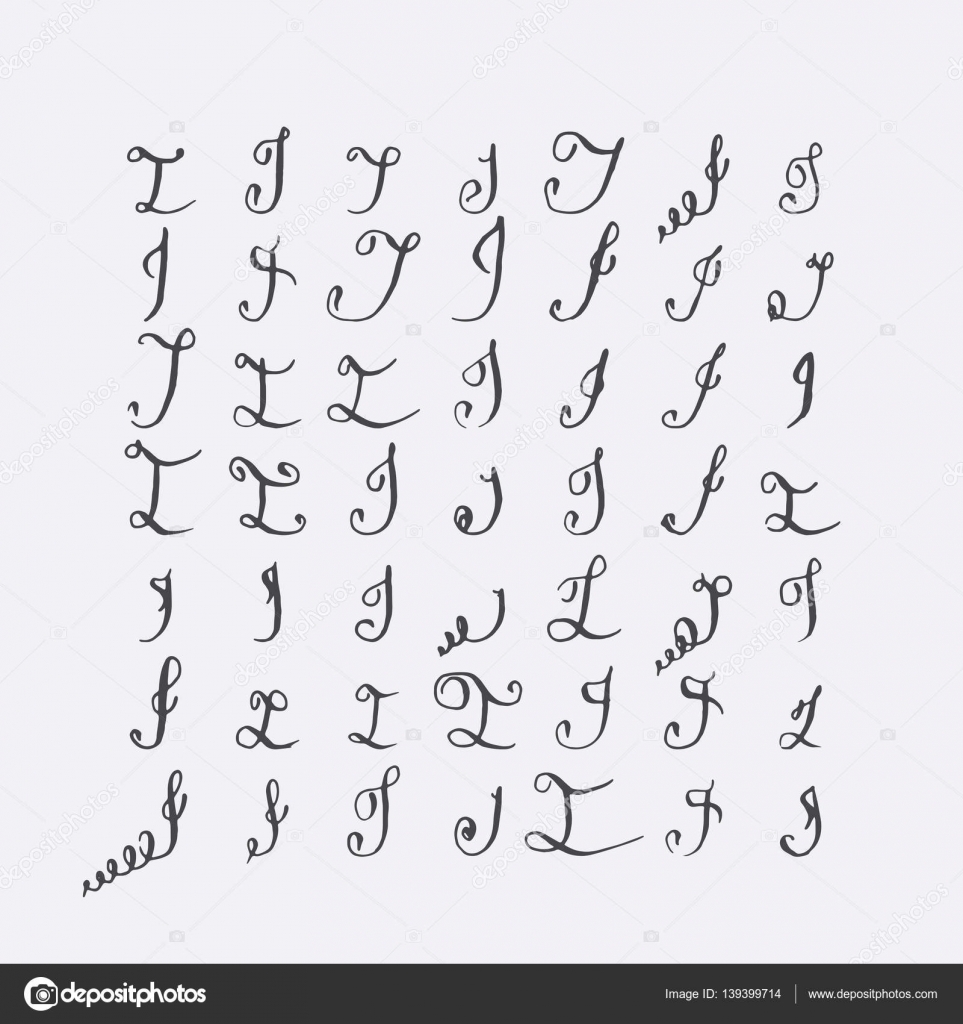 I I I I I I I
I I I I I I I
I I I I I I I
I I I I I I I
I I I I I I I
I I I I I I I
I I I I I I I
depositphotos Image ID: 139399714 www.depositphotos.com